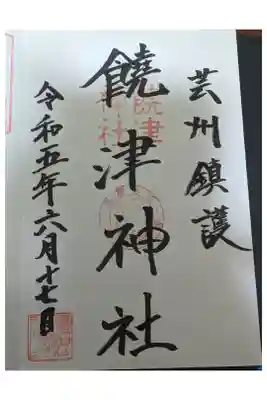 芸州鎮護
饒津神社
令和五年六月十七日